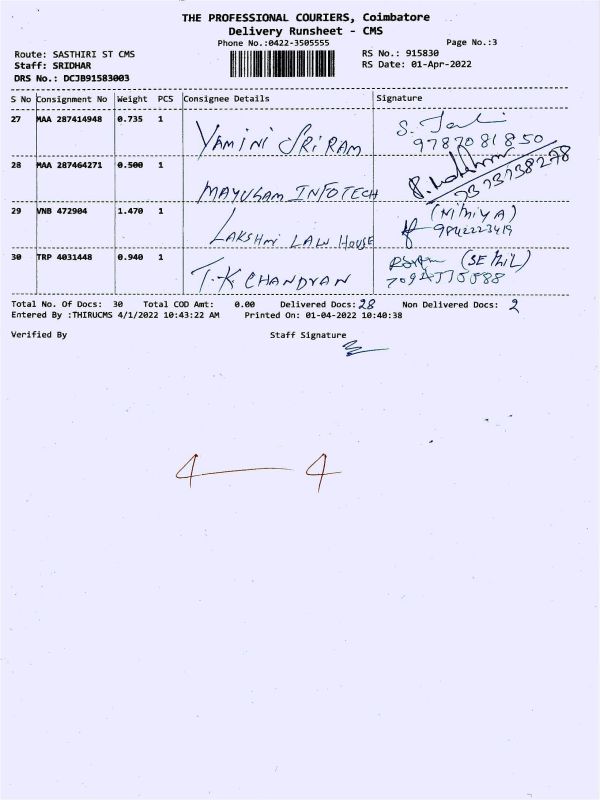 THE PROFESSIONAL COURIERS, Coimbatore
Delivery Runsheet - CMS
Phone No.:0422-3505555
Page No.:3
Route: SASTHIRI ST CMS
RS No.: 915830
Staff: SRIDHAR
RS Date: 01-Apr-2022
DRS No.: DCJB91583003
S No Consignment No Weight PCS Consignee Details Signature
27 MAA 287414948 0.735 1 YAMINI SRIRAM
9787081850
28 MAA 287464271 0.500 1 MAYUSAM INFOTECH
29 VNB 472904 1.470 1 LAKSHMI LAW HOUSE (NIMIYA)
9842223419
30 TRP 4031448 0.940 1 T.K CHANDRAN
Total No. Of Docs: 30 Total COD Amt: 0.00 Delivered Docs: 28 Non Delivered Docs: 2
Entered By :THIRUCMS 4/1/2022 10:43:22 AM Printed On: 01-04-2022 10:40:38
Verified By Staff Signature
4 — 4